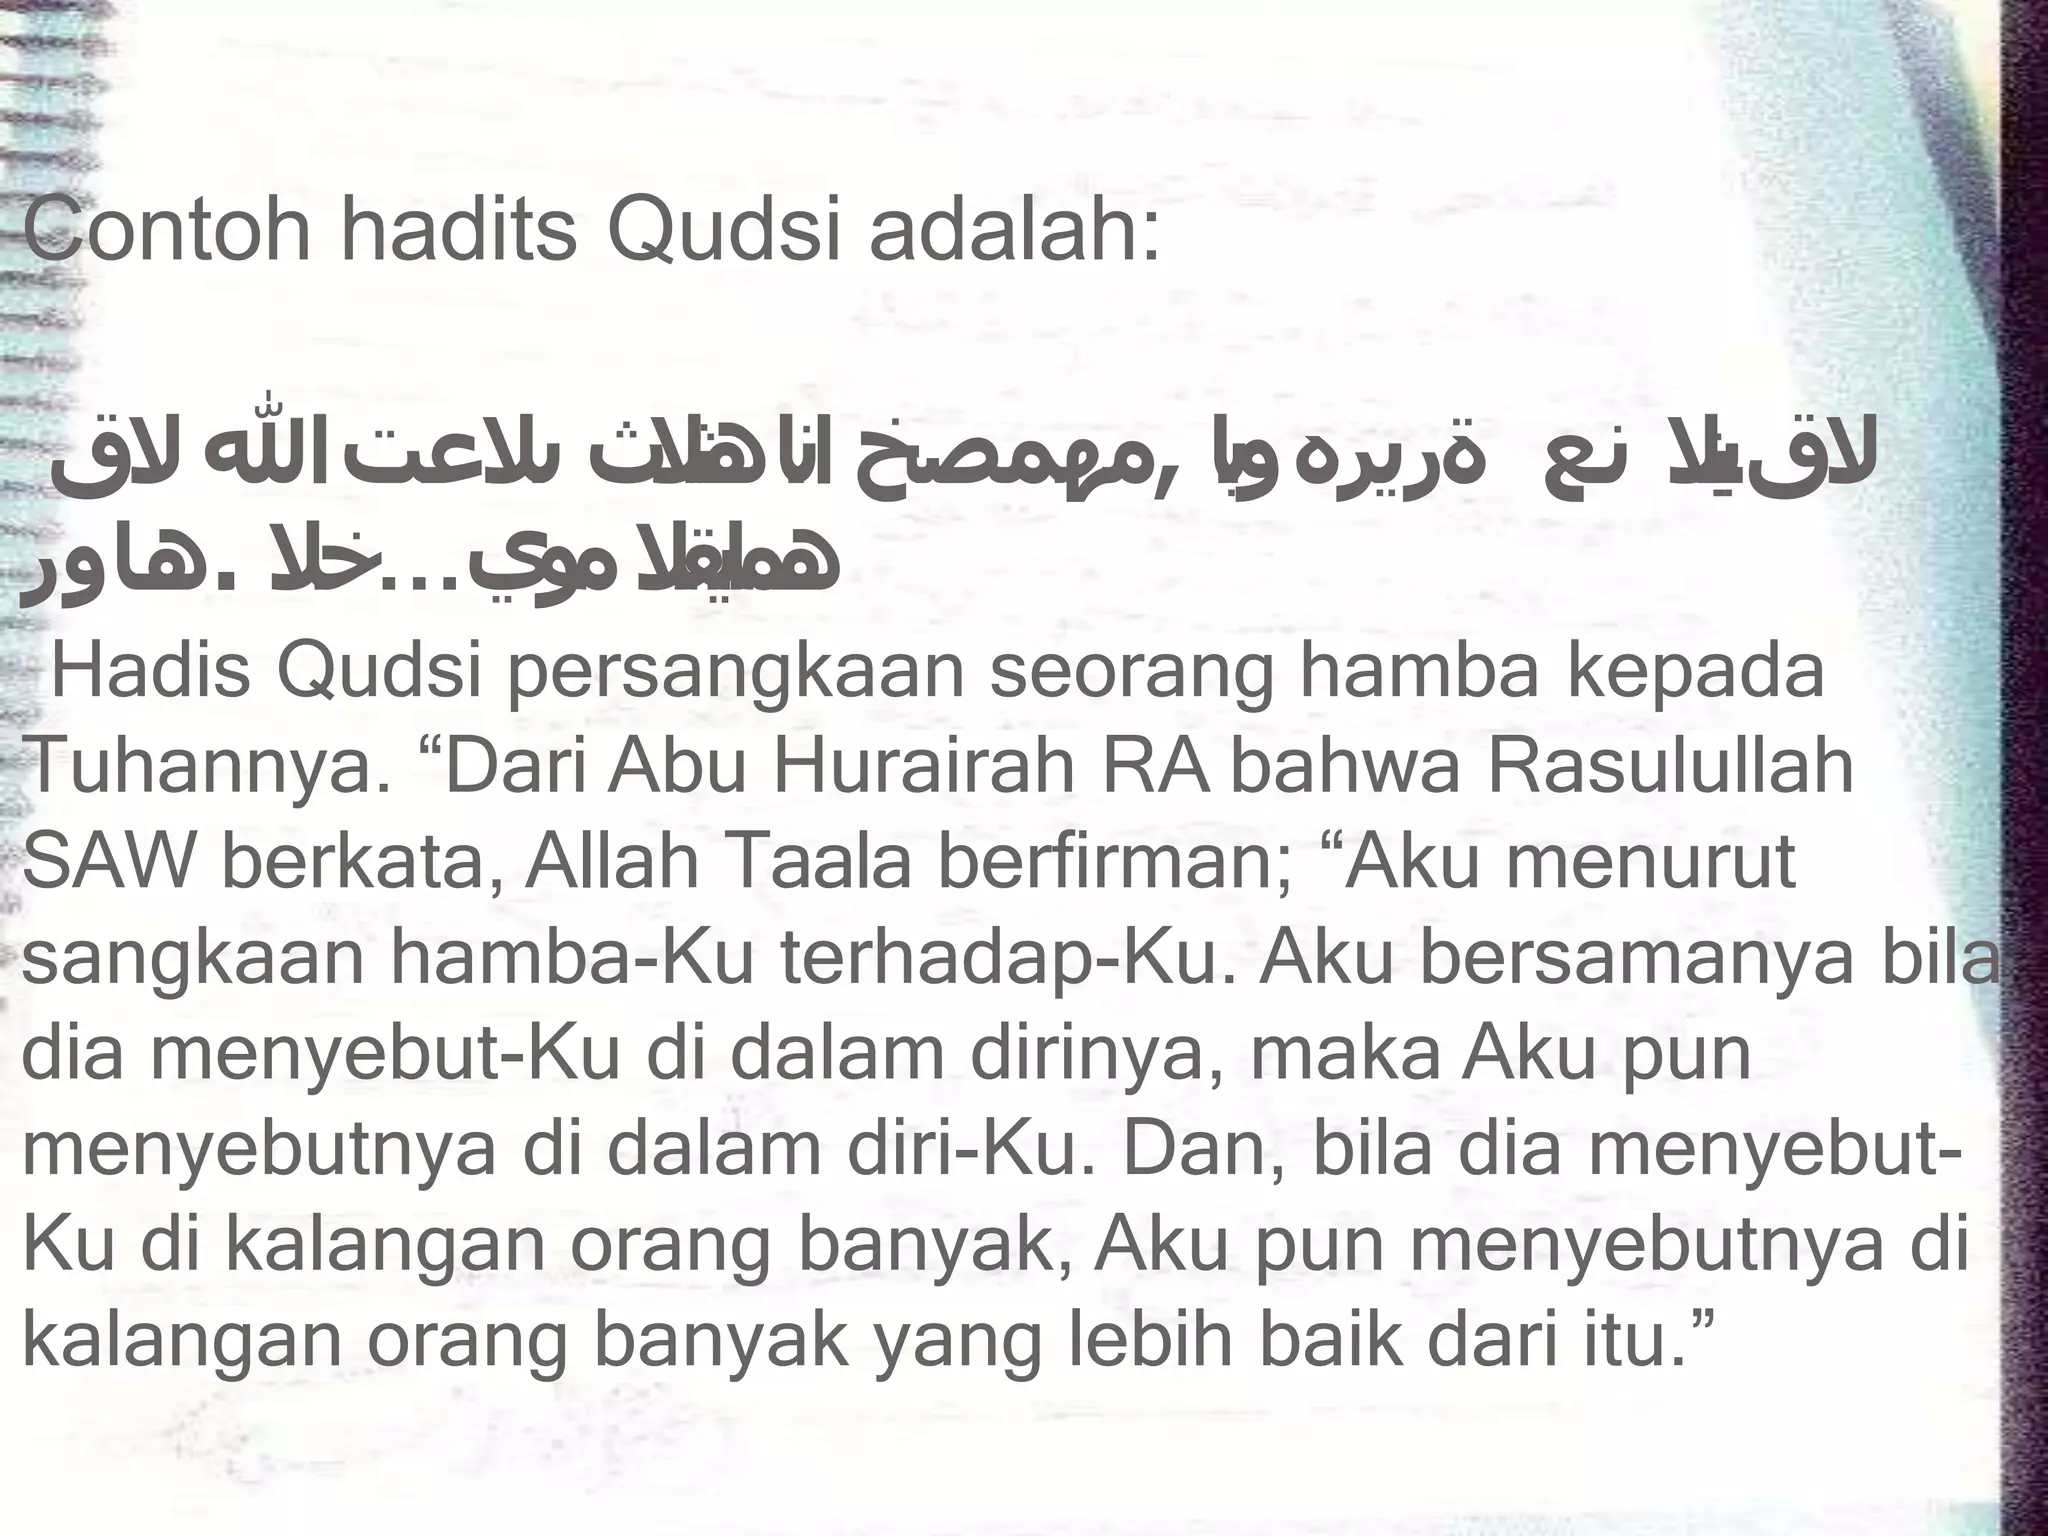 Contoh hadits Qudsi adalah:
لاق يبنلا نع ةريره وبا ,مهمصخ انا هثلاث ىلاعت الله لاق
هاور. خلا...موي همايقلا
Hadis Qudsi persangkaan seorang hamba kepada
Tuhannya. “Dari Abu Hurairah RA bahwa Rasulullah
SAW berkata, Allah Taala berfirman; “Aku menurut
sangkaan hamba-Ku terhadap-Ku. Aku bersamanya bila
dia menyebut-Ku di dalam dirinya, maka Aku pun
menyebutnya di dalam diri-Ku. Dan, bila dia menyebut-
Ku di kalangan orang banyak, Aku pun menyebutnya di
kalangan orang banyak yang lebih baik dari itu.”